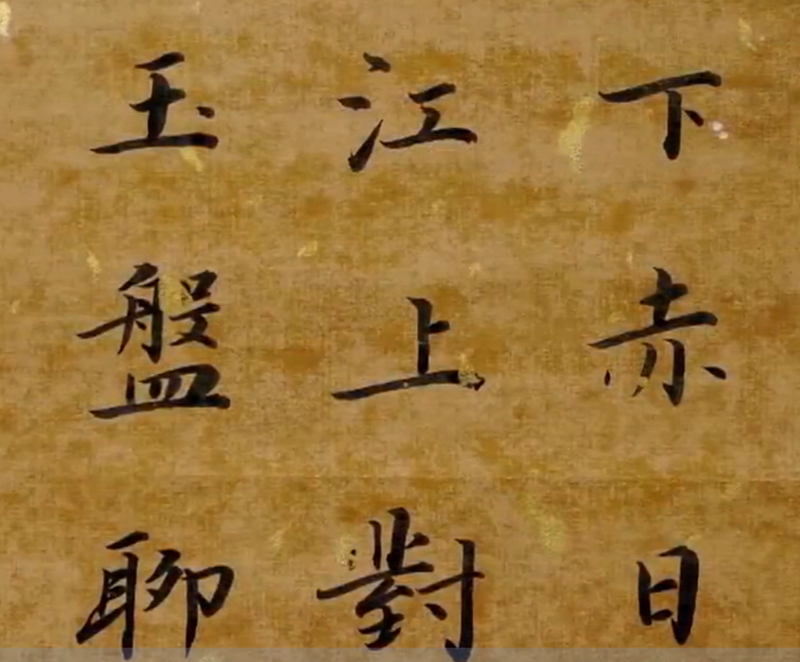 下赤日
江上對
玉盤聊